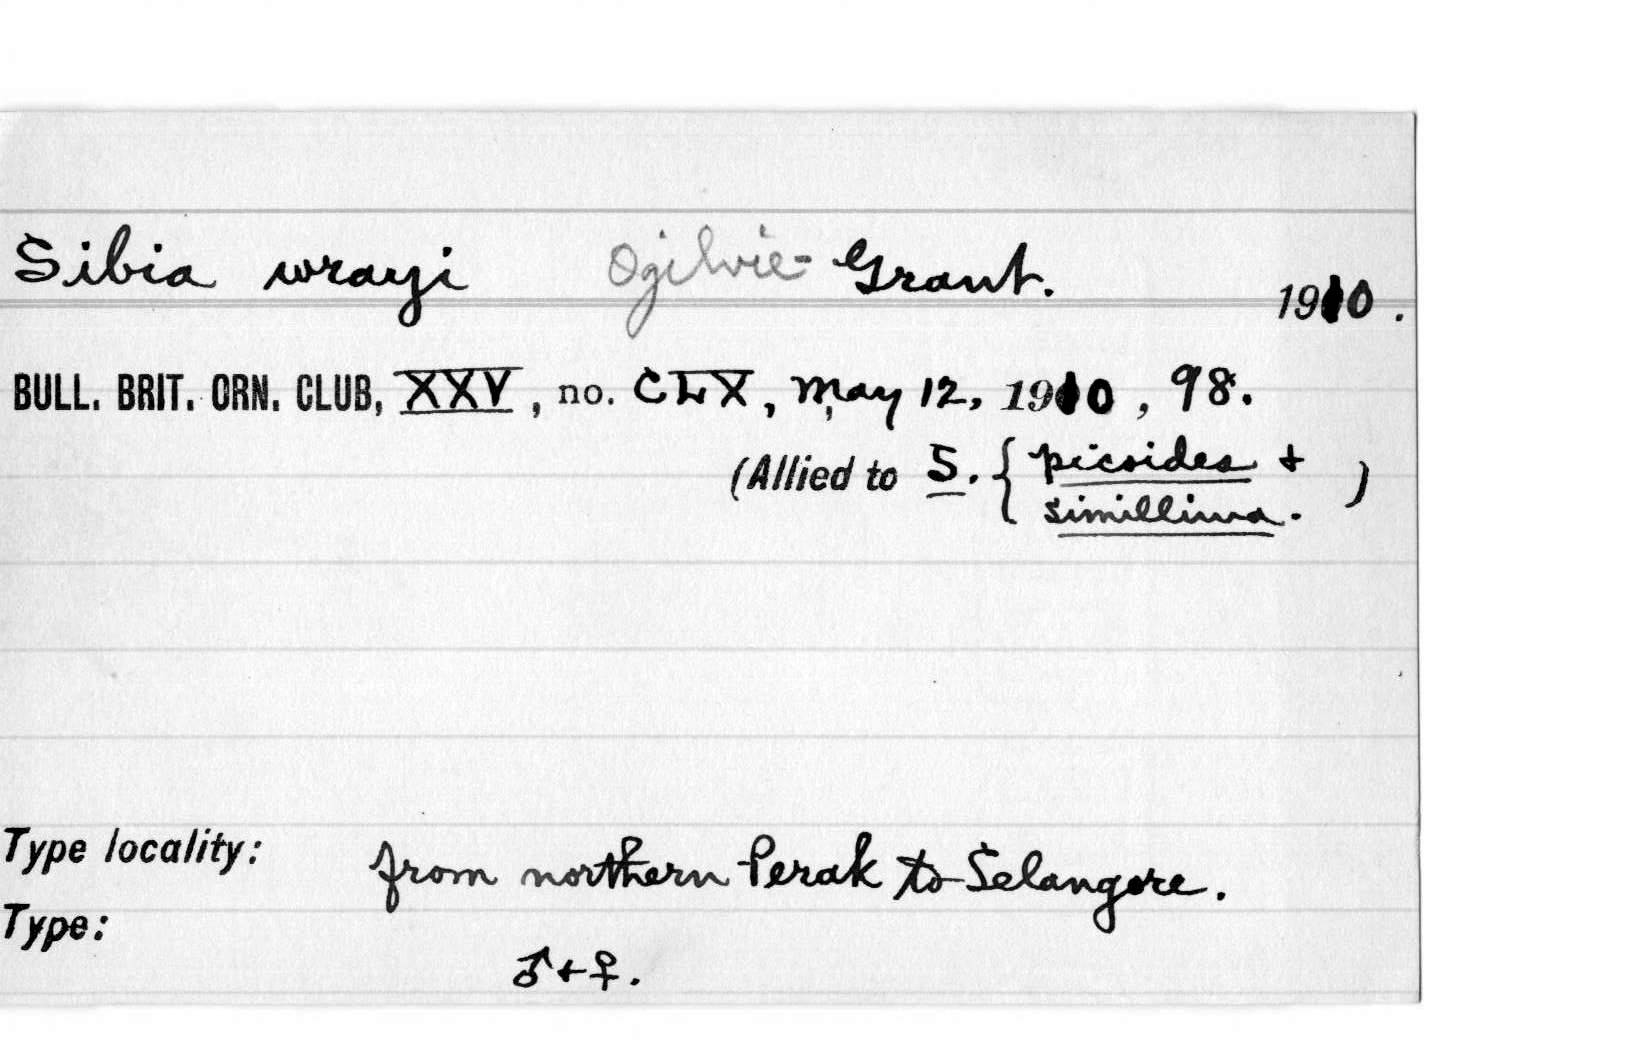 Sibia wrayi Ogilvie-Grant. 1910.
BULL. BRIT. ORN. CLUB, XXV, no. CLX, May 12, 1910, 98.
(Allied to S. { picoides +
simillima. )
Type locality: from northern Perak to Selangore.
Type:
♂ + ♀.